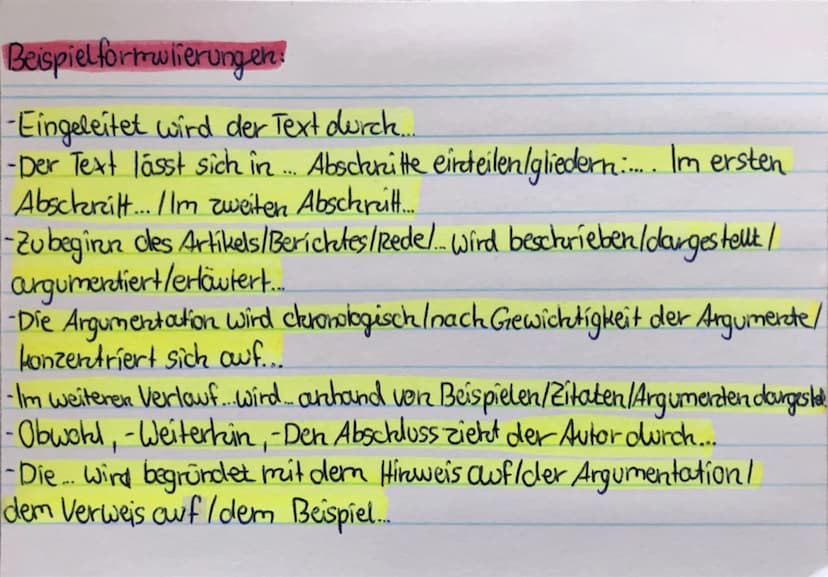 Beispielformulierungen:
-Eingeleitet wird der Text durch...
-Der Text lässt sich in ... Abschnitte einteilen/gliedern:.... Im ersten
Abschnitt... /Im zweiten Abschnitt...
-Zu beginn des Artikels/Berichtes/Rede/... wird beschrieben/dargestellt/
argumentiert/erläutert...
-Die Argumentation wird chronologisch/nach Gewichtigkeit der Argumente/
konzentriert sich auf...
-Im weiteren Verlauf...wird...anhand von Beispielen/Zitaten/Argumenten dargestellt
-Obwohl, -Weiterhin, -Den Abschluss zieht der Autor durch...
-Die ... wird begründet mit dem Hinweis auf/der Argumentation/
dem Verweis auf/dem Beispiel...